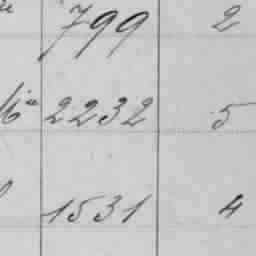 799 2
2232 5
1531 4